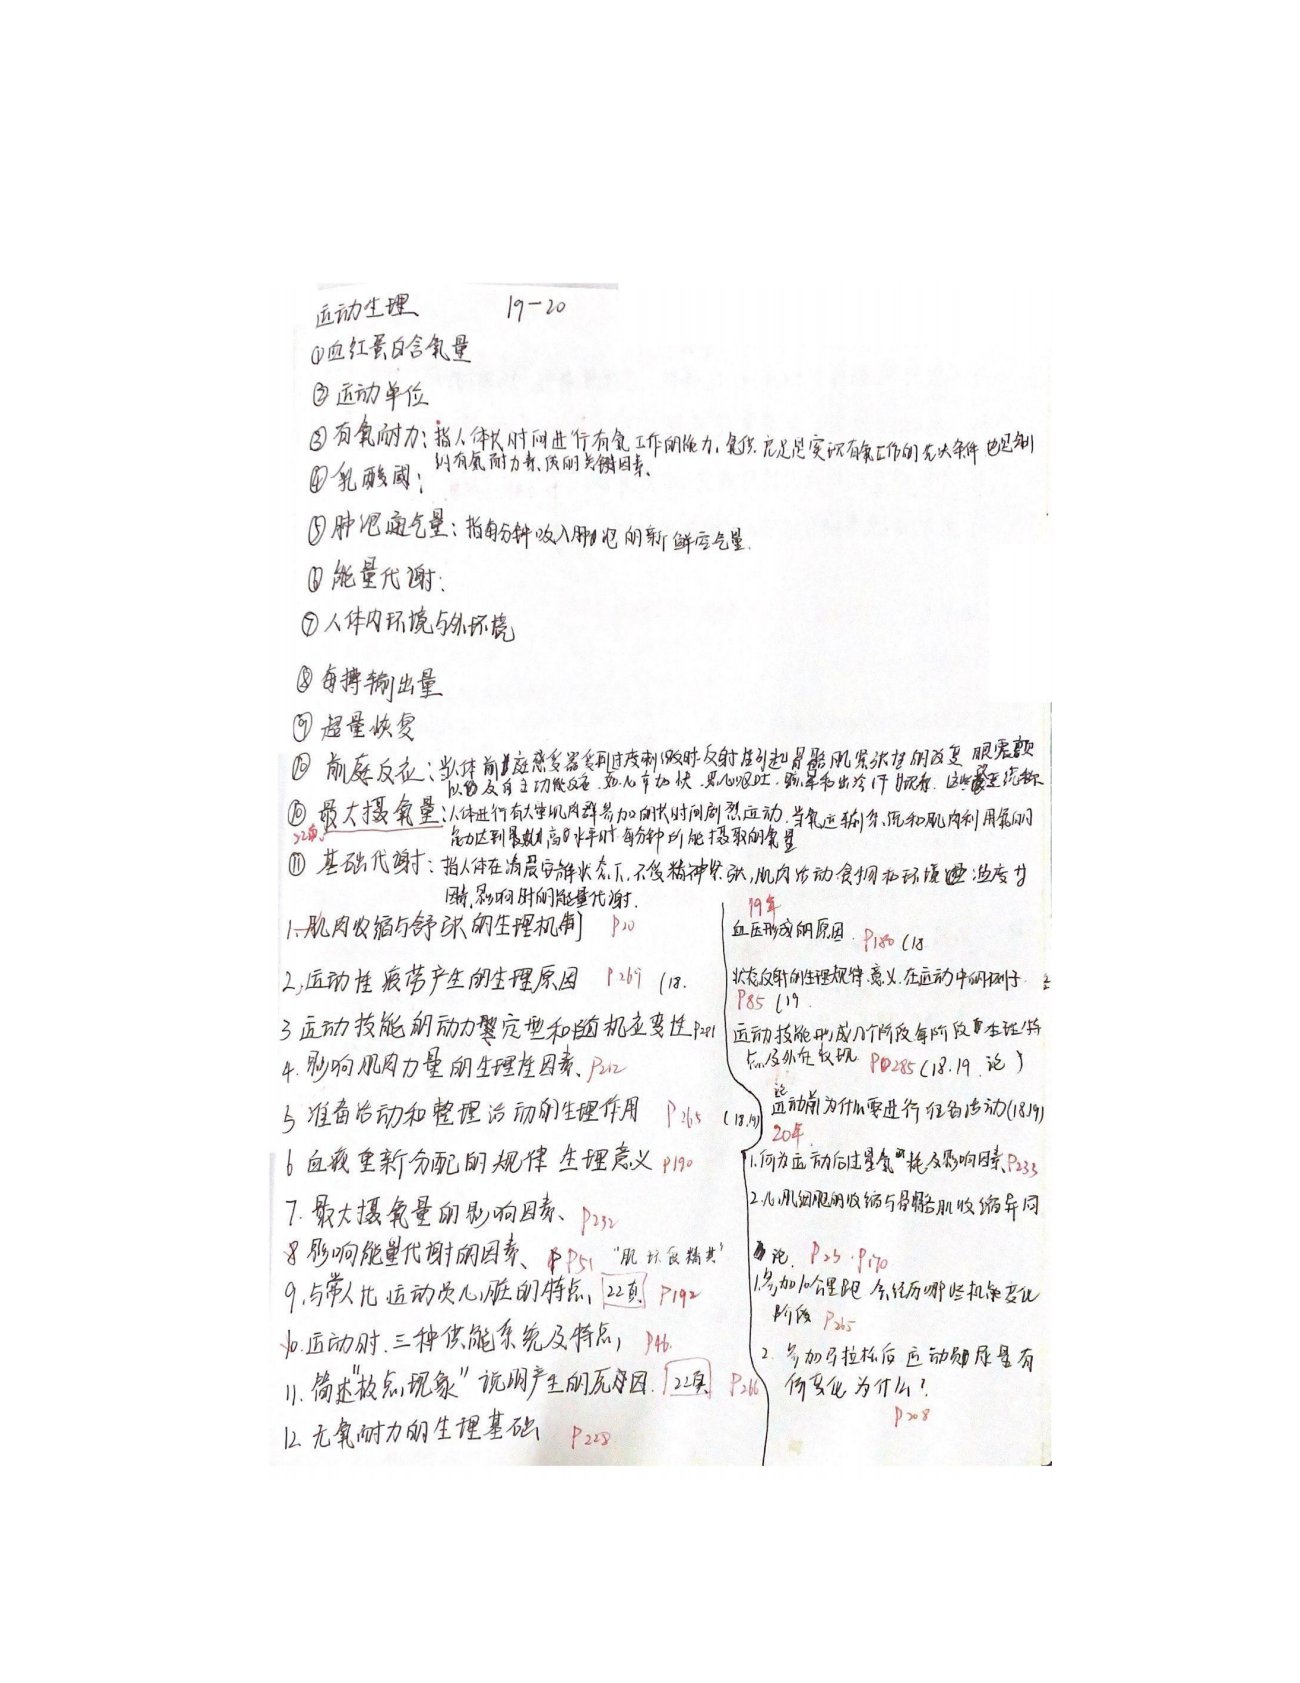 运动生理 19-20
①血红蛋白含氧量
②运动单位
③有氧耐力:指人体长时间进行有氧工作的能力,氧供充足是实现有氧工作的先决条件也是制
约有氧耐力素质的关键因素、
④乳酸阈:
⑤肺泡通气量:指每分钟吸入肺泡的新鲜空气量.
⑥能量代谢:
⑦人体内环境与外环境
⑧每搏输出量
⑨超量恢复
⑩前庭反应:当人体前庭感受器受到过度刺激时反射性引起骨骼肌紧张性的改变 眼震颤
以及自主功能反应 如心率加快 恶心呕吐 眩晕和出冷汗 统称
⑩最大摄氧量:人体进行有大量肌肉群参加的长时间剧烈运动.当氧运输系统和肌肉利用氧的
22真 能力达到最高水平时每分钟所能摄取的氧量
⑪基础代谢:指人体在清晨安静状态下,不受精神紧张,肌肉活动食物和环境温度等
因素影响时的能量代谢.
1、肌肉收缩与舒张的生理机制 P20
2、运动性疲劳产生的生理原因 P269 (18.
3 运动技能的动力定型和随机应变性P281
4.影响肌肉力量的生理性因素、P212
5 准备活动和整理活动的生理作用 P265 (18.19)
6 血液重新分配的规律 生理意义 P190
7.最大摄氧量的影响因素、P232
8 影响能量代谢的因素、P51 "肌环食精其"
9,与常人比运动员心脏的特点, 22真 P192
10.运动时.三种供能系统及特点, P46.
11.简述"极点现象"说明产生的原因. 22真 P266
12 无氧耐力的生理基础 P228
19年
血压形成的原因. P180 (18
状态反射的生理规律.意义.在运动中的例子.
P85 (19.
运动技能形成几个阶段每阶段生理特
点及外在表现 P285(18.19.论)
论
运动前为什么要进行准备活动(18.19)
20年
1.何为运动后过量氧耗及影响因素P233
2.心肌细胞的收缩与骨骼肌收缩异同
论. P23.P170
1.参加10公里跑 会经历哪些机能变化
阶段 P265
2.参加马拉松后运动员尿量有
何变化 为什么?
P208